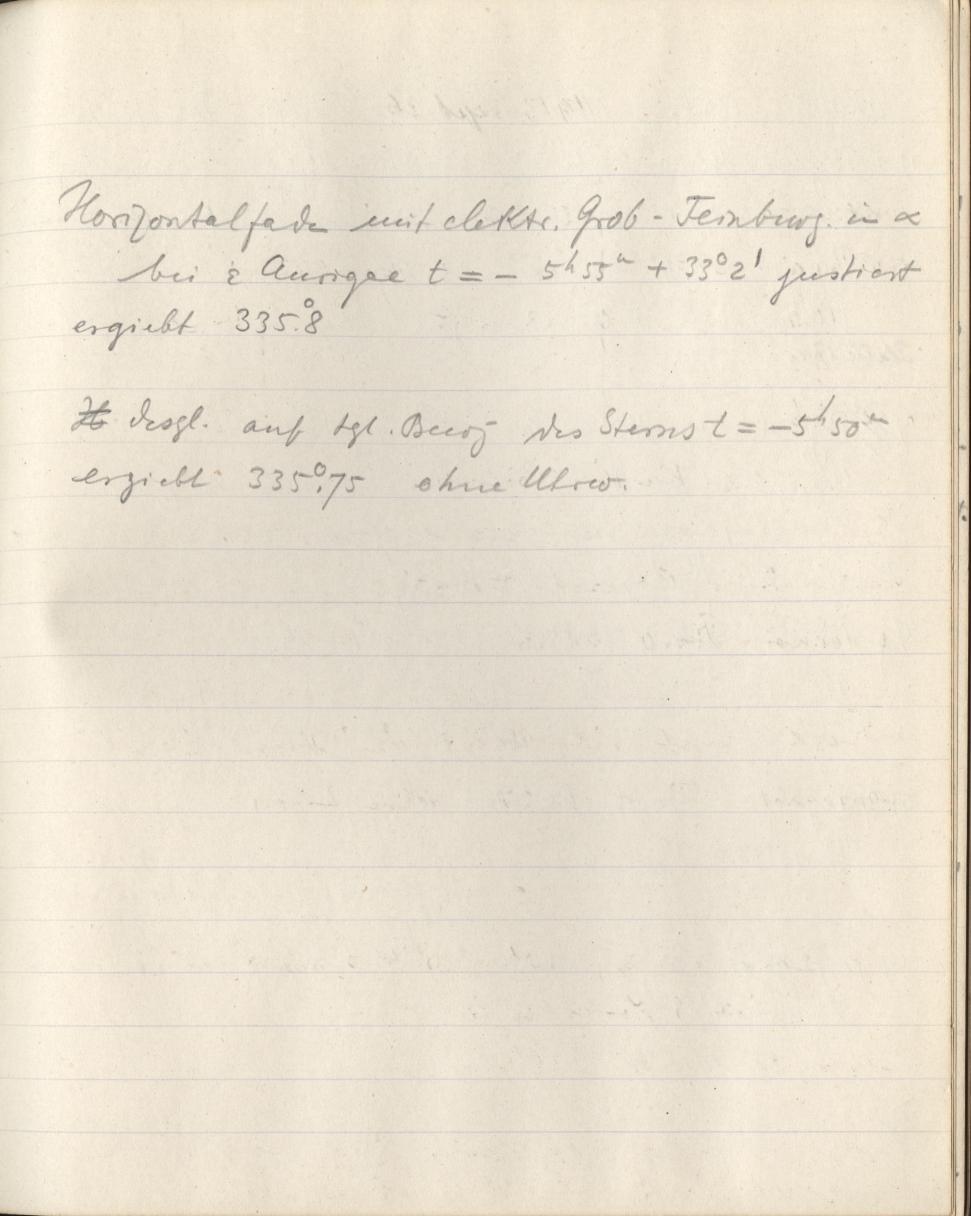 Horizontalfaden mit elektr. Grob-Feinbwg. in α
bei ε Aurigae t = - 5ʰ55ᵐ + 33°2' justiert
ergiebt 335°.8
desgl. auf tgl. Beweg. des Sterns t = -5ʰ50ᵐ
ergiebt 335°.75 ohne Uhrw.